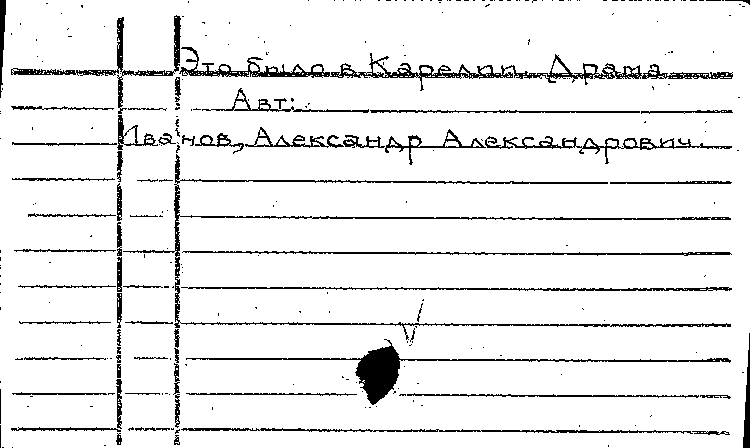 Это было в Карелии. Драма
Авт:
Иванов, Александр Александрович.